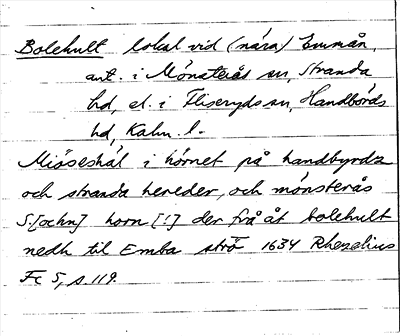 Bolehult lokal vid (nära) Emmån,
ant. i Mönsterås sn, Stranda
hd, el. i Fliseryds sn, Handbörds
hd, Kalm. l.
Miöseshål i hörnet på handbyrdz
och stranda hereder, och mönsterås
S:[ochn] horn [!] der frå åt bolehult
nedh til Emba strö 1634 Rhezelius
Fc 5, s. 119.